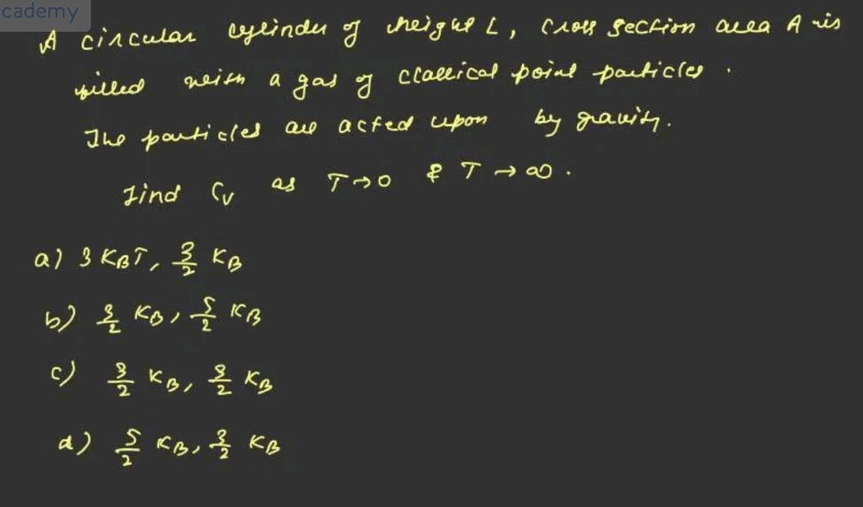 cademy
A circular cylinder of height L, Cross section area A is
filled with a gas of classical point particles .
The particles are acted upon by gravity.
Find Cv as T→0 & T→∞.
a) 3 KBT, 3/2 KB
b) 3/2 KB, 5/2 KB
c) 3/2 KB, 3/2 KB
d) 5/2 KB, 3/2 KB